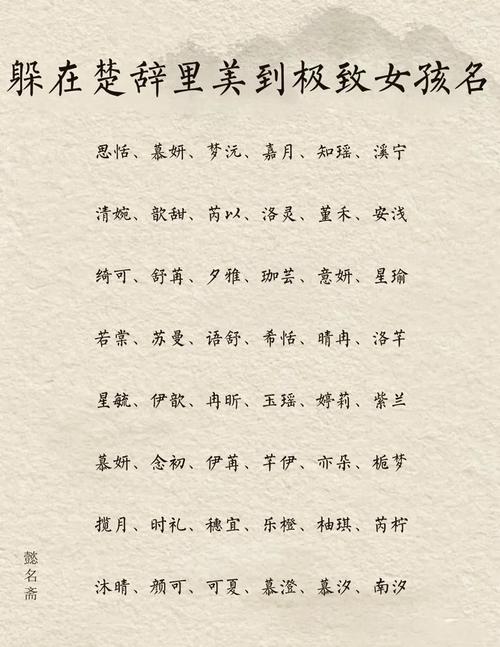 躲在楚辞里美到极致女孩名
思恬、慕妍、梦沅、嘉月、知瑶、溪宁
清婉、歆甜、芮以、洛灵、堇禾、安浅
绮可、舒苒、夕雅、珈芸、意妍、星瑜
若棠、苏曼、语舒、希恬、晴冉、洛芊
星毓、伊歆、冉昕、玉瑶、婷莉、紫兰
慕妍、念初、伊苒、芊伊、亦朵、栀梦
揽月、时礼、穗宜、乐橙、柚琪、芮柠
沐晴、颜可、可夏、慕澄、慕汐、南汐
懿名斋